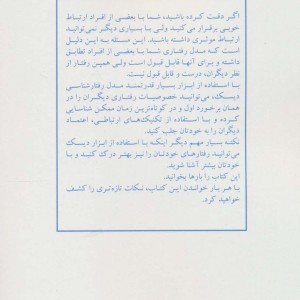 اگر دقت کرده باشید، شما با بعضی از افراد ارتباط
خوبی برقرار می‌کنید ولی با بسیاری دیگر نمی‌توانید
ارتباط موثری داشته باشید. این مسئله به این دلیل
است که مدل رفتاری شما با بعضی از افراد تطابق
داشته و برای آنها قابل قبول است ولی همین رفتار از
نظر دیگران، درست و قابل قبول نیست.
با استفاده از ابزار بسیار قدرتمند مدل رفتارشناسی
دیسک، می‌توانید خصوصیات رفتاری دیگران را در
همان برخورد اول و در کوتاه‌ترین زمان ممکن شناسایی
کرده و با استفاده از تکنیک‌های ارتباطی، اعتماد
دیگران را به خودتان جلب کنید.
نکته بسیار مهم دیگر اینکه با استفاده از ابزار دیسک
می‌توانید رفتارهای خودتان را نیز بهتر درک کنید و با
خودتان بیشتر آشنا شوید.
این کتاب را بارها بخوانید.
با هر بار خواندن این کتاب، نکات تازه‌تری را کشف
خواهید کرد.